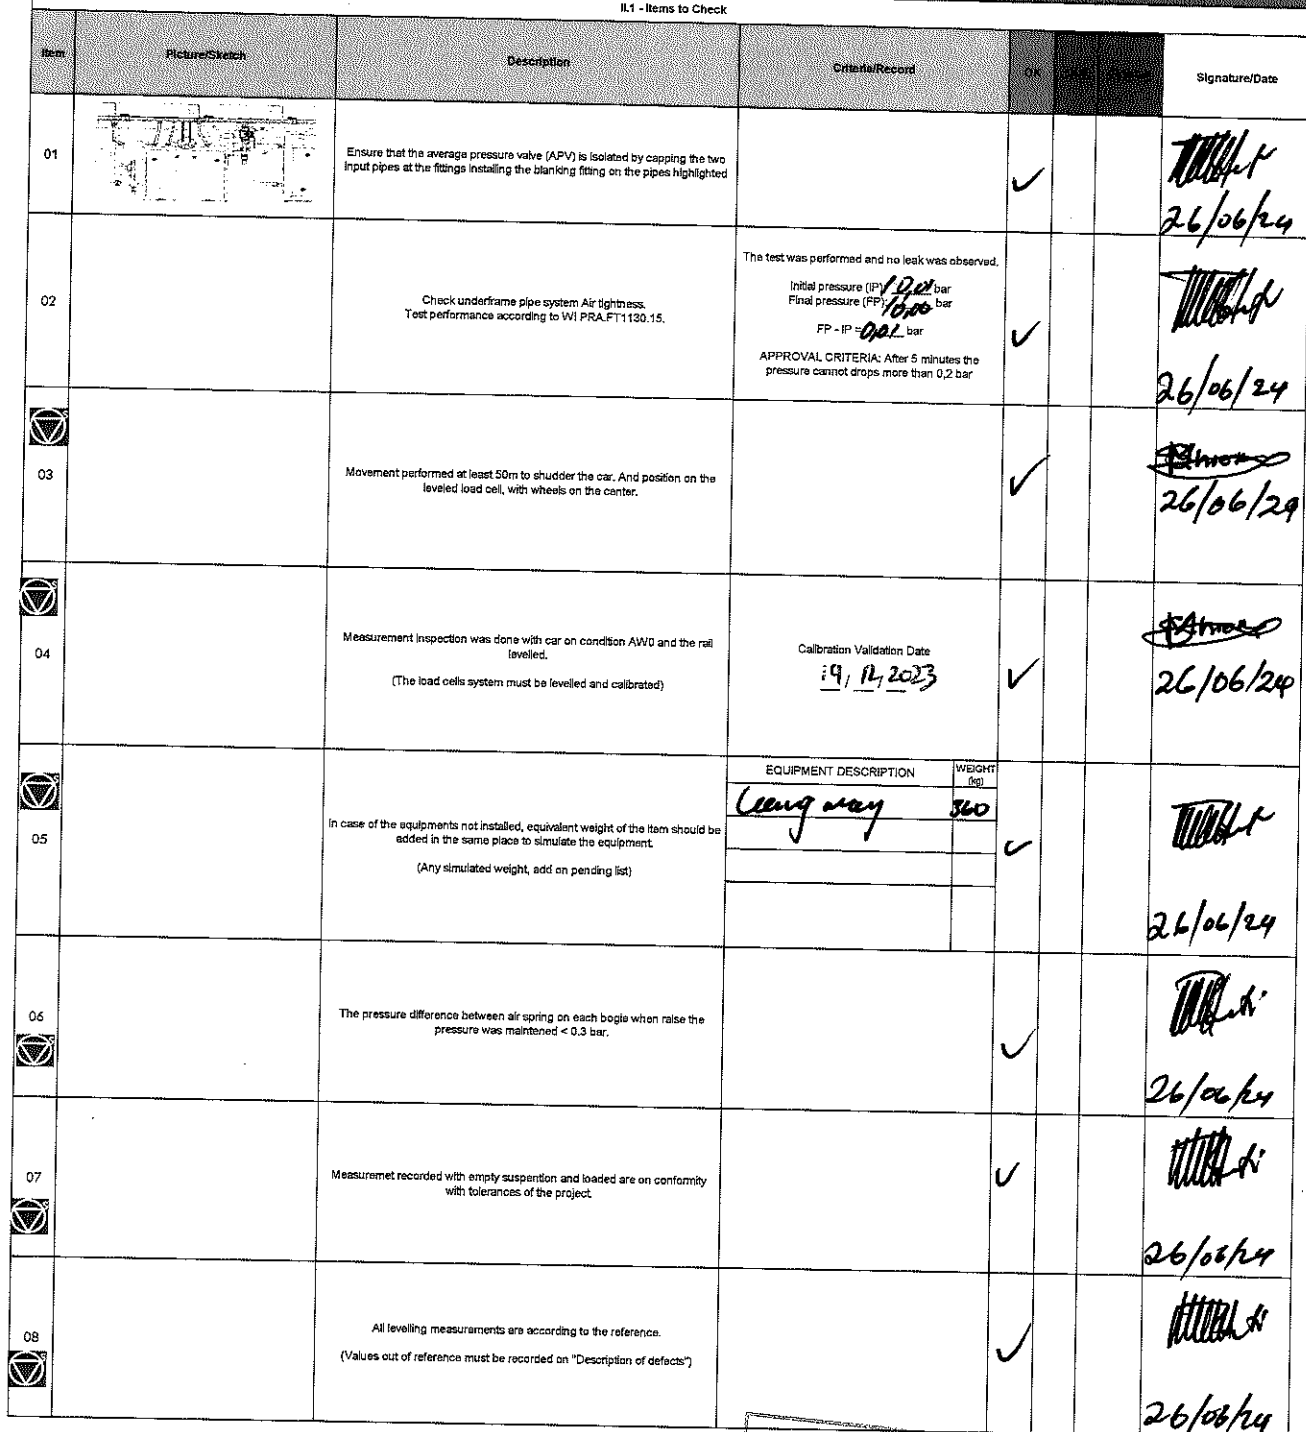 II.1 - Items to Check
Item
Picture/Sketch
Description
Criteria/Record
OK
Signature/Date
01
Ensure that the average pressure valve (APV) is isolated by capping the two
input pipes at the fittings installing the blanking fitting on the pipes highlighted
26/06/24
02
Check underframe pipe system Air tightness.
Test performance according to WI PRA.FT1130.15.
The test was performed and no leak was observed.
Initial pressure (IP) 10,01 bar
Final pressure (FP): 10,00 bar
FP - IP = 0,01 bar
APPROVAL CRITERIA: After 5 minutes the
pressure cannot drops more than 0,2 bar
26/06/24
03
Movement performed at least 50m to shudder the car. And position on the
leveled load cell, with wheels on the center.
26/06/24
04
Measurement inspection was done with car on condition AW0 and the rail
levelled.
(The load cells system must be levelled and calibrated)
Calibration Validation Date
19, 12, 2023
26/06/24
05
In case of the equipments not installed, equivalent weight of the item should be
added in the same place to simulate the equipment.
(Any simulated weight, add on pending list)
EQUIPMENT DESCRIPTION
WEIGHT
(kg)
360
26/06/24
06
The pressure difference between air spring on each bogie when raise the
pressure was maintened < 0.3 bar.
26/06/24
07
Measuremet recorded with empty suspention and loaded are on conformity
with tolerances of the project
26/06/24
08
All levelling measurements are according to the reference.
(Values out of reference must be recorded on "Description of defects")
26/06/24